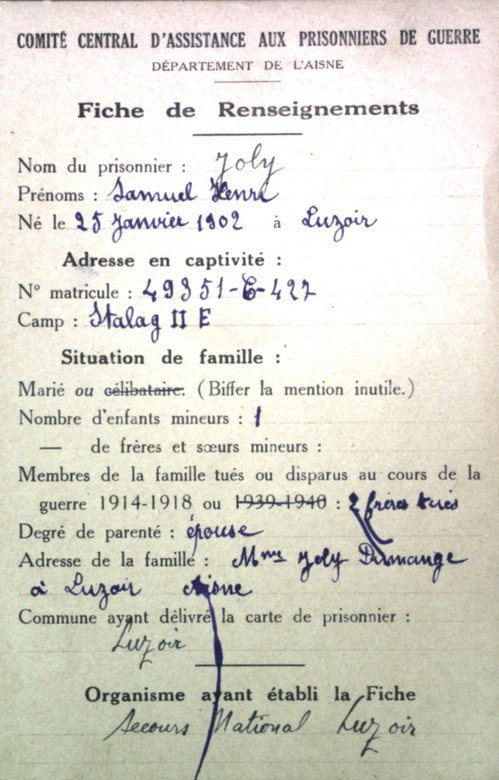 COMITÉ CENTRAL D'ASSISTANCE AUX PRISONNIERS DE GUERRE
DÉPARTEMENT DE L'AISNE
Fiche de Renseignements
Nom du prisonnier : Joly
Prénoms : Samuel Henri
Né le 25 Janvier 1902 à Luzoir
Adresse en captivité :
N° matricule : 49351-E-427
Camp : Stalag II E
Situation de famille :
Marié ou célibataire. (Biffer la mention inutile.)
Nombre d'enfants mineurs : 1
— de frères et sœurs mineurs :
Membres de la famille tués ou disparus au cours de la
guerre 1914-1918 ou 1939-1940 : 2 frères tués
Degré de parenté : épouse
Adresse de la famille : Mme Joly Dumange
à Luzoir Aisne
Commune ayant délivré la carte de prisonnier :
Luzoir
Organisme ayant établi la Fiche
Secours National Luzoir